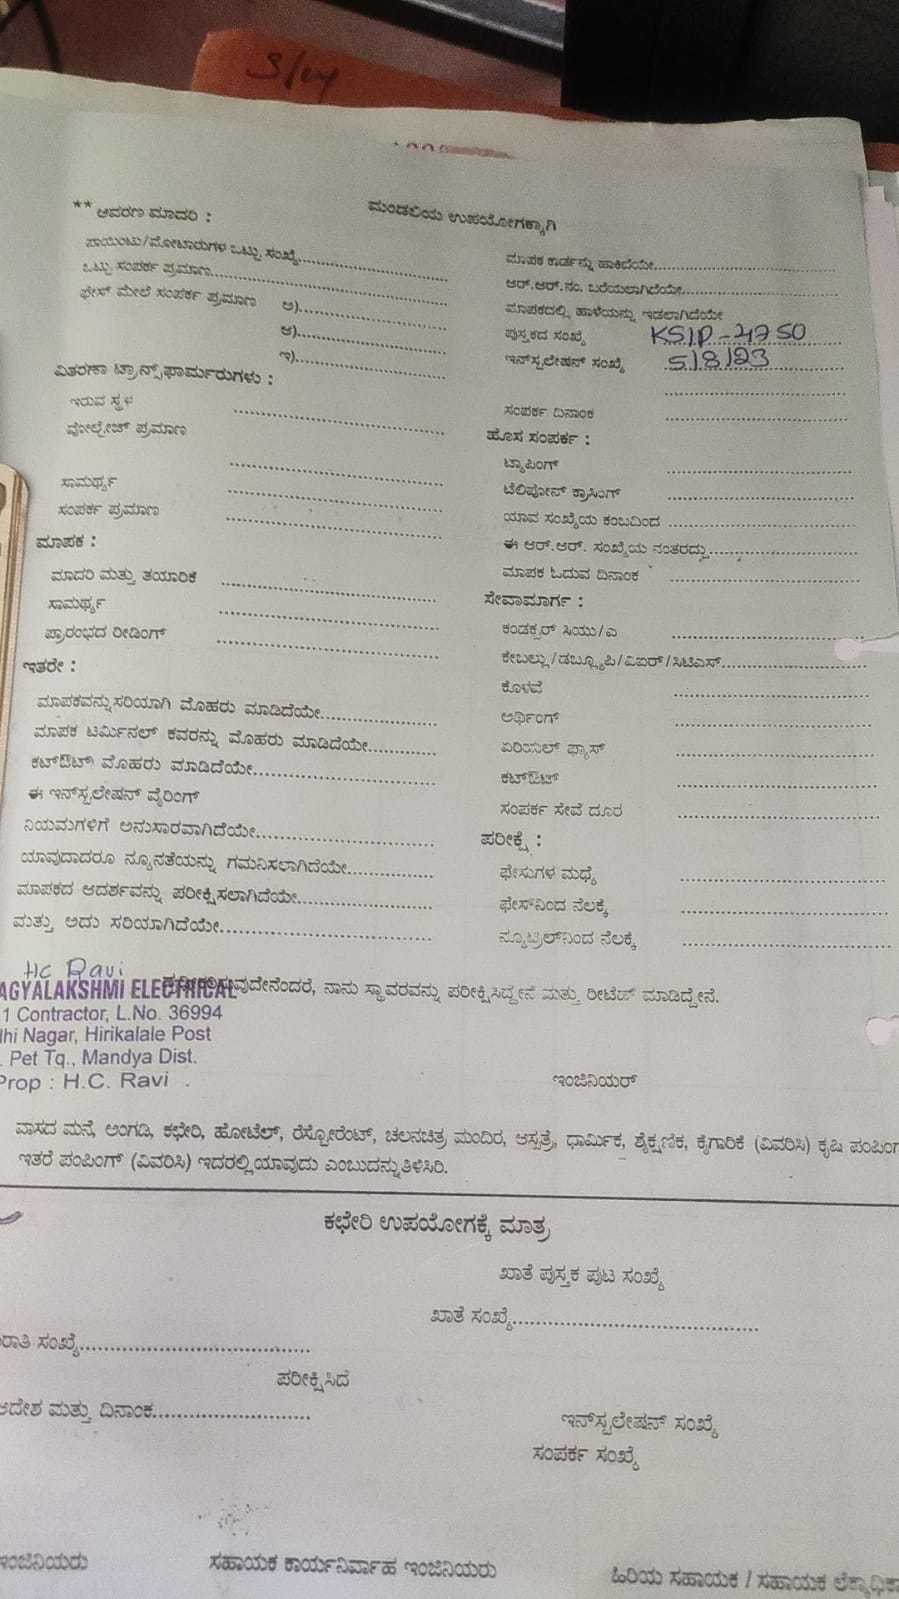 3/04
** ಆವರಣ ಮಾದರಿ :
ಮಂಡಳಿಯ ಉಪಯೋಗಕ್ಕಾಗಿ
ಪಾಯಿಂಟು/ಮೋಟಾರುಗಳ ಒಟ್ಟು ಸಂಖ್ಯೆ
ಒಟ್ಟು ಸಂಪರ್ಕ ಪ್ರಮಾಣ
ಫೇಸ್ ಮೇಲೆ ಸಂಪರ್ಕ ಪ್ರಮಾಣ ಅ)
ಆ)
ಇ)
ವಿತರಣಾ ಟ್ರಾನ್ಸ್‌ಫಾರ್ಮರುಗಳು :
ಇರುವ ಸ್ಥಳ
ವೋಲ್ಟೇಜ್ ಪ್ರಮಾಣ
ಸಾಮರ್ಥ್ಯ
ಸಂಪರ್ಕ ಪ್ರಮಾಣ
ಮಾಪಕ :
ಮಾದರಿ ಮತ್ತು ತಯಾರಿಕೆ
ಸಾಮರ್ಥ್ಯ
ಪ್ರಾರಂಭದ ರೀಡಿಂಗ್
ಇತರೇ :
ಮಾಪಕವನ್ನು ಸರಿಯಾಗಿ ಮೊಹರು ಮಾಡಿದೆಯೇ
ಮಾಪಕ ಟರ್ಮಿನಲ್ ಕವರನ್ನು ಮೊಹರು ಮಾಡಿದೆಯೇ
ಕಟ್‌ಔಟ್ ಮೊಹರು ಮಾಡಿದೆಯೇ
ಈ ಇನ್‌ಸ್ಟಲೇಷನ್ ವೈರಿಂಗ್
ನಿಯಮಗಳಿಗೆ ಅನುಸಾರವಾಗಿದೆಯೇ
ಯಾವುದಾದರೂ ನ್ಯೂನತೆಯನ್ನು ಗಮನಿಸಲಾಗಿದೆಯೇ
ಮಾಪಕದ ಆದರ್ಶವನ್ನು ಪರೀಕ್ಷಿಸಲಾಗಿದೆಯೇ
ಮತ್ತು ಅದು ಸರಿಯಾಗಿದೆಯೇ
ಮಾಪಕ ಕಾರ್ಡನ್ನು ಹಾಕಿದೆಯೇ
ಆರ್.ಆರ್.ನಂ. ಬರೆಯಲಾಗಿದೆಯೇ
ಮಾಪಕದಲ್ಲಿ ಹಾಳೆಯನ್ನು ಇಡಲಾಗಿದೆಯೇ
ಪುಸ್ತಕದ ಸಂಖ್ಯೆ KSIP-4750
ಇನ್‌ಸ್ಟಲೇಷನ್ ಸಂಖ್ಯೆ 5/8/23
ಸಂಪರ್ಕ ದಿನಾಂಕ
ಹೊಸ ಸಂಪರ್ಕ :
ಟ್ಯಾಪಿಂಗ್
ಟೆಲಿಫೋನ್ ಕ್ರಾಸಿಂಗ್
ಯಾವ ಸಂಖ್ಯೆಯ ಕಂಬದಿಂದ
ಈ ಆರ್.ಆರ್. ಸಂಖ್ಯೆಯ ನಂತರದ್ದು
ಮಾಪಕ ಓದುವ ದಿನಾಂಕ
ಸೇವಾಮಾರ್ಗ :
ಕಂಡಕ್ಟರ್ ಸಿಯು/ಎ
ಕೇಬಲ್ಲು/ಡಬ್ಲ್ಯೂಪಿ/ವಿಐರ್/ಸಿಟಿಎಸ್
ಕೊಳವೆ
ಅರ್ಥಿಂಗ್
ಏರಿಯಲ್ ಫ್ಯೂಸ್
ಕಟ್‌ಔಟ್
ಸಂಪರ್ಕ ಸೇವೆ ದೂರ
ಪರೀಕ್ಷೆ :
ಫೇಸುಗಳ ಮಧ್ಯೆ
ಫೇಸ್‌ನಿಂದ ನೆಲಕ್ಕೆ
ನ್ಯೂಟ್ರಲ್‌ನಿಂದ ನೆಲಕ್ಕೆ
HC Ravi
AGYALAKSHMI ELECTRICAL
1 Contractor, L.No. 36994
dhi Nagar, Hirikalale Post
. Pet Tq., Mandya Dist.
Prop : H.C. Ravi .
ನಾನು ಸ್ಥಾವರವನ್ನು ಪರೀಕ್ಷಿಸಿದ್ದೇನೆ ಮತ್ತು ರೀಟೆಡ್ ಮಾಡಿದ್ದೇನೆ.
ಇಂಜಿನಿಯರ್
ವಾಸದ ಮನೆ, ಅಂಗಡಿ, ಕಛೇರಿ, ಹೋಟೆಲ್, ರೆಸ್ಟೋರೆಂಟ್, ಚಲನಚಿತ್ರ ಮಂದಿರ, ಆಸ್ಪತ್ರೆ, ಧಾರ್ಮಿಕ, ಶೈಕ್ಷಣಿಕ, ಕೈಗಾರಿಕೆ (ವಿವರಿಸಿ) ಕೃಷಿ ಪಂಪಿಂಗ
ಇತರೆ ಪಂಪಿಂಗ್ (ವಿವರಿಸಿ) ಇದರಲ್ಲಿ ಯಾವುದು ಎಂಬುದನ್ನು ತಿಳಿಸಿರಿ.
ಕಛೇರಿ ಉಪಯೋಗಕ್ಕೆ ಮಾತ್ರ
ಖಾತೆ ಪುಸ್ತಕ ಪುಟ ಸಂಖ್ಯೆ
ಖಾತೆ ಸಂಖ್ಯೆ
ರಾತಿ ಸಂಖ್ಯೆ
ಪರೀಕ್ಷಿಸಿದೆ
ಆದೇಶ ಮತ್ತು ದಿನಾಂಕ
ಇನ್‌ಸ್ಟಲೇಷನ್ ಸಂಖ್ಯೆ
ಸಂಪರ್ಕ ಸಂಖ್ಯೆ
ಇಂಜಿನಿಯರು
ಸಹಾಯಕ ಕಾರ್ಯನಿರ್ವಾಹ ಇಂಜಿನಿಯರು
ಹಿರಿಯ ಸಹಾಯಕ / ಸಹಾಯಕ ಲೆಕ್ಕಾಧಿಕಾ